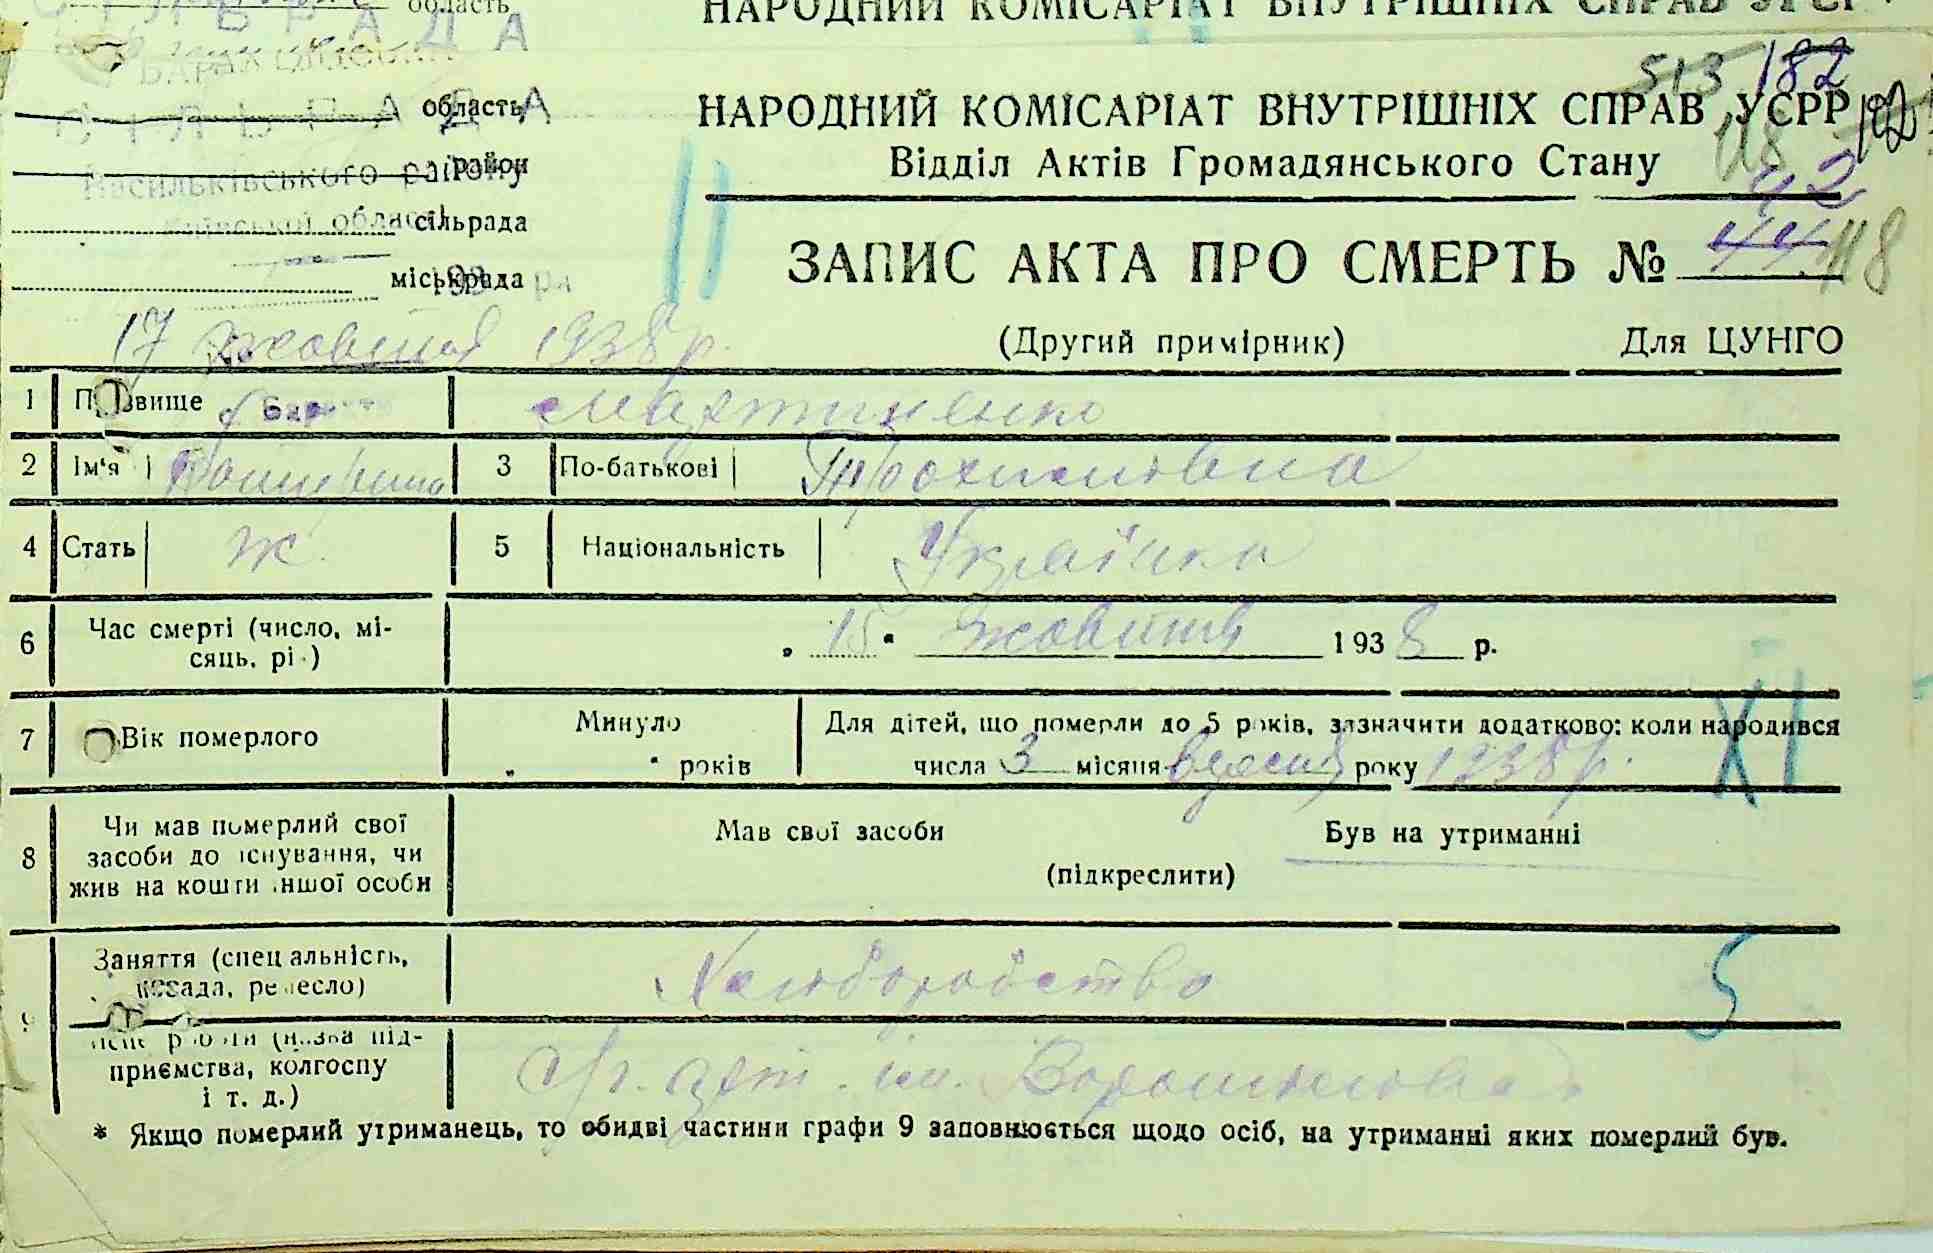 область
НАРОДНИЙ КОМІСАРІАТ ВНУТРІШНІХ СПРАВ УСРР
513 182
СІЛЬРАДА
область
НАРОДНИЙ КОМІСАРІАТ ВНУТРІШНІХ СПРАВ УСРР 182
118
Васильківського району
район
Відділ Актів Громадянського Стану
42
Київської області
сільрада
ЗАПИС АКТА ПРО СМЕРТЬ № 44 118
міськрада
193 р.
17 жовтня 1938 р.
(Другий примірник) Для ЦУНГО
1 Прізвище Мартиненко
2 Ім'я 3 По-батькові Трохимовна
4 Стать ж. 5 Національність Українка
6 Час смерті (число, мі-
сяць, рік) „15" жовтня 1938 р.
7 Вік померлого Минуло років Для дітей, що померли до 5 років, зазначити додатково: коли народився
числа 3 місяця вересня року 1938 р.
XI
8 Чи мав померлий свої
засоби до існування, чи
жив на кошти іншої особи
Мав свої засоби Був на утриманні
(підкреслити)
9 Заняття (спеціальність,
посада, ремесло) Хліборобство 5
Місце роботи (назва під-
приємства, колгоспу
і т. д.) арт. ім. Ворошилова
* Якщо померлий утриманець, то обидві частини графи 9 заповнюється щодо осіб, на утриманні яких померлий був.